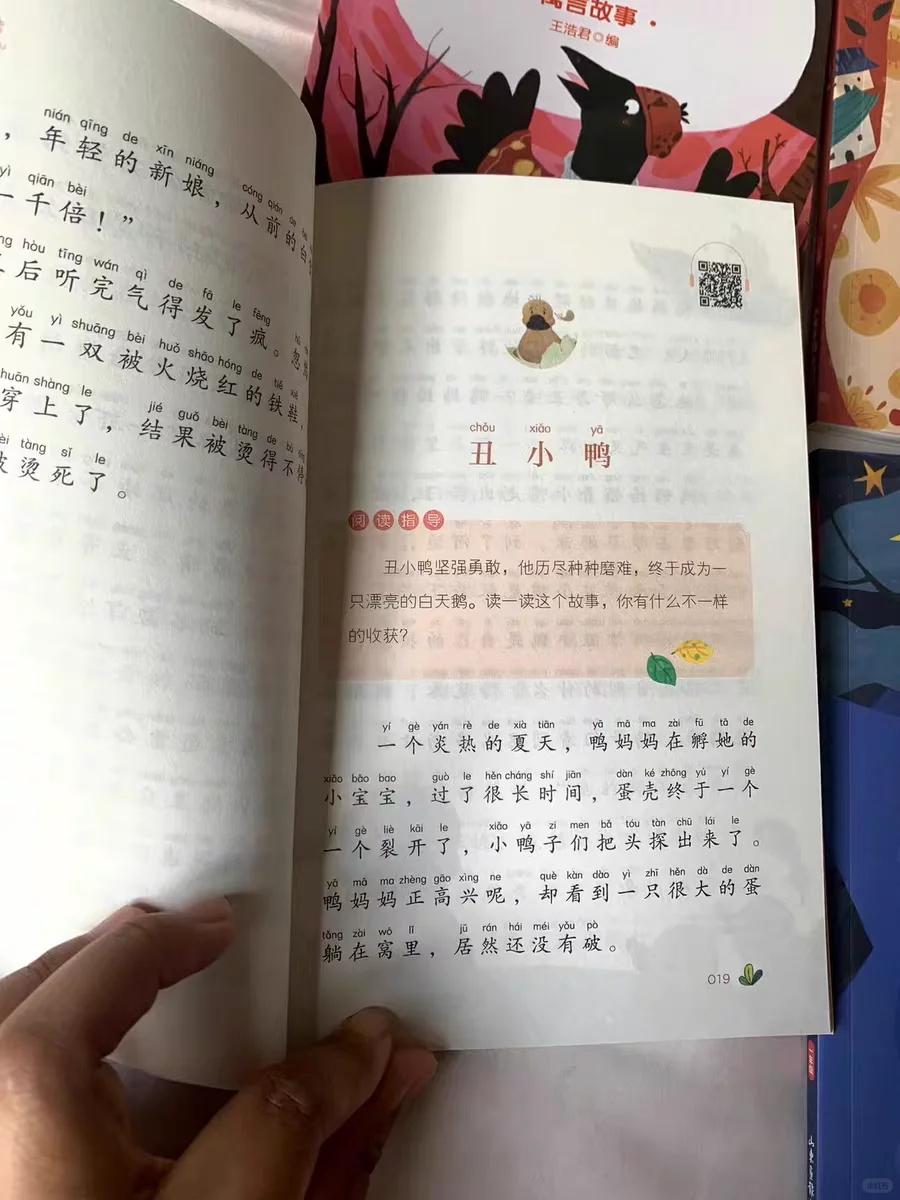 寓言故事·
王浩君◎编
nián qīng de xīn niáng cóng qián de
，年轻的新娘，从前的白
yì qiān bèi
一千倍！”
hòu tīng wán qì de fā le fēng
后听完气得发了疯。忽
yǒu yì shuāng bèi huǒ shāo hóng de tiě
有一双被火烧红的铁鞋，
chuān shàng le jié guǒ bèi tàng de bù
穿上了，结果被烫得不停
bèi tàng sǐ le
被烫死了。
chǒu xiǎo yā
丑小鸭
阅读指导
丑小鸭坚强勇敢，他历尽种种磨难，终于成为一
只漂亮的白天鹅。读一读这个故事，你有什么不一样
的收获？
yí gè yán rè de xià tiān yā mā ma zài fū tā de
一个炎热的夏天，鸭妈妈在孵她的
xiǎo bǎo bao guò le hěn cháng shí jiān dàn ké zhōng yú yí gè
小宝宝，过了很长时间，蛋壳终于一个
yí gè liè kāi le xiǎo yā zi men bǎ tóu tàn chū lái le
一个裂开了，小鸭子们把头探出来了。
yā mā ma zhèng gāo xìng ne què kàn dào yì zhī hěn dà de dàn
鸭妈妈正高兴呢，却看到一只很大的蛋
tǎng zài wō lǐ jū rán hái méi yǒu pò
躺在窝里，居然还没有破。
019
小红书